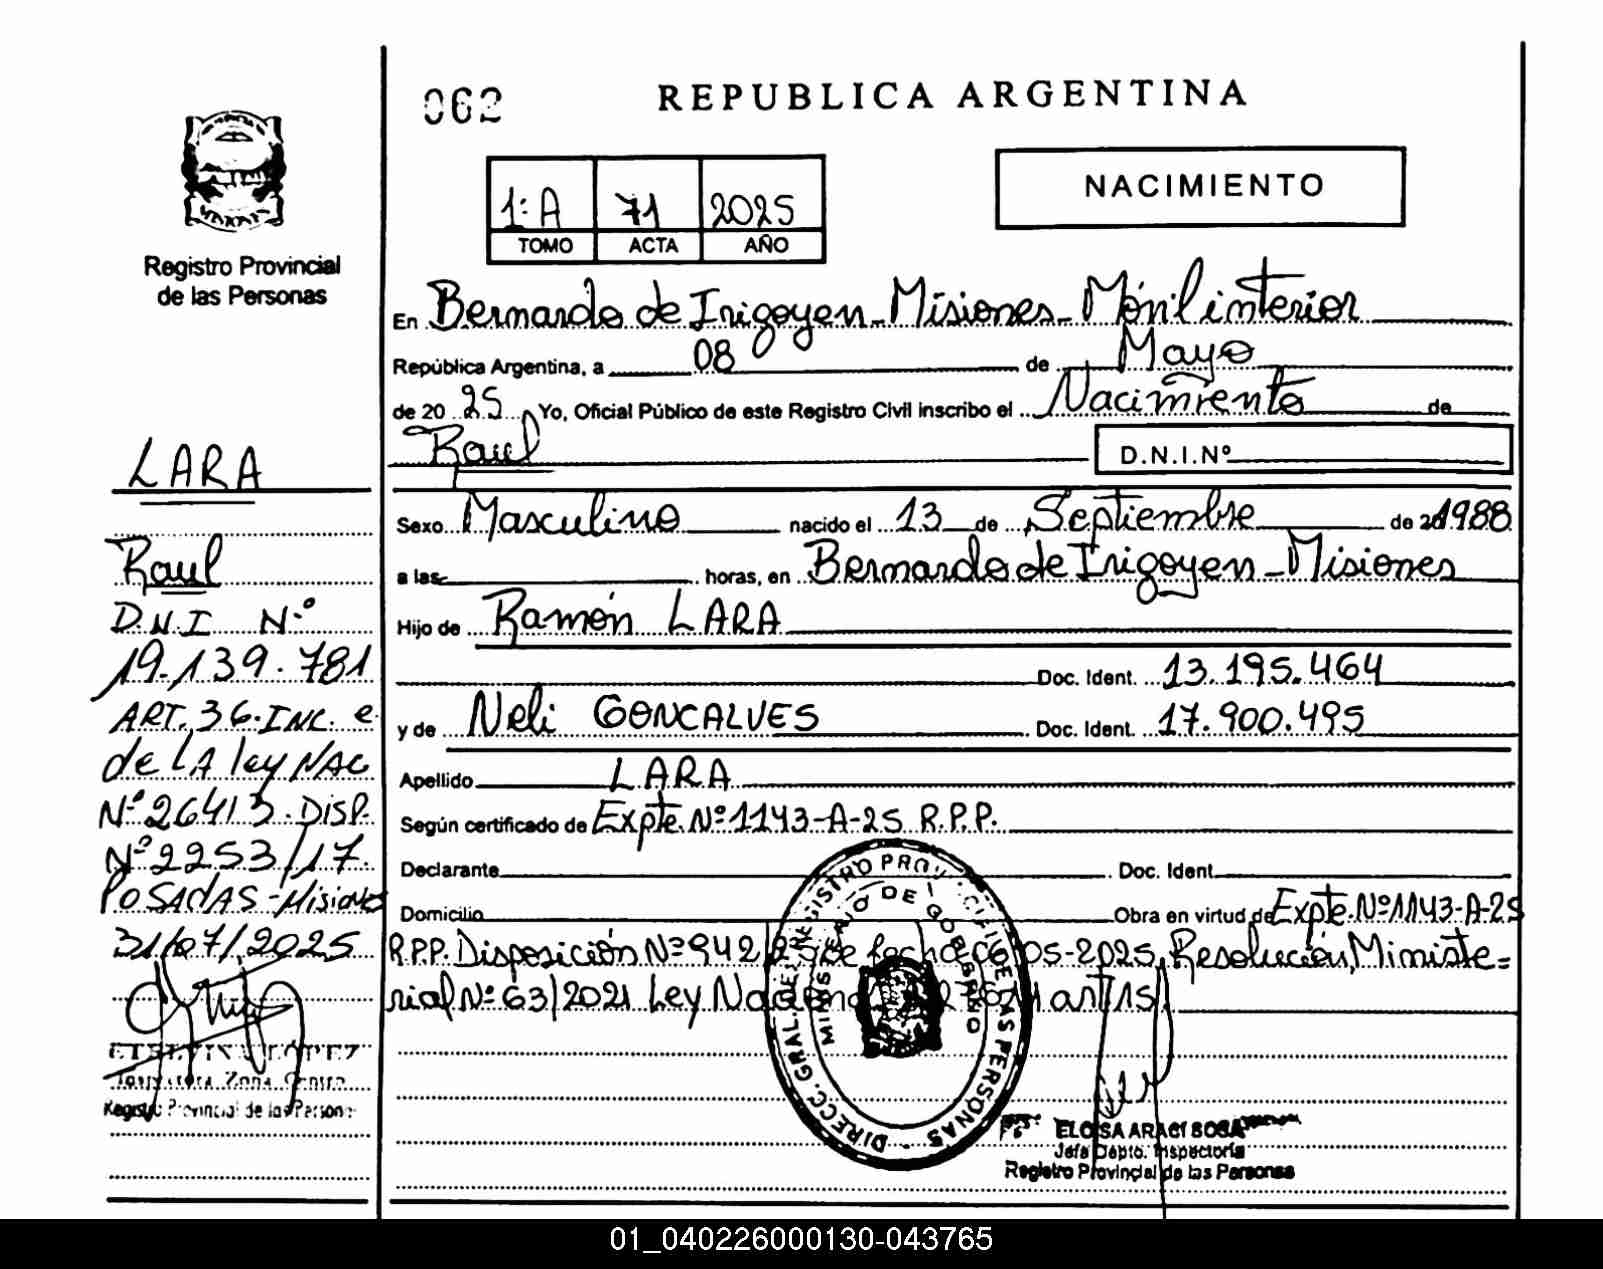 062
REPUBLICA ARGENTINA
1:A 71 2025
TOMO ACTA AÑO
NACIMIENTO
Registro Provincial
de las Personas
En Bernardo de Irigoyen - Misiones - Móvil interior
República Argentina, a 08 de Mayo
de 20 25 Yo, Oficial Público de este Registro Civil inscribo el Nacimiento de
Raul
D.N.I. Nº
Sexo Masculino nacido el 13 de Septiembre de 20 1988
a las horas, en Bernardo de Irigoyen - Misiones
Hijo de Ramón LARA
Doc. Ident. 13.195.464
y de Neli GONCALVES Doc. Ident. 17.900.495
Apellido LARA
Según certificado de Expte. Nº 1143-A-25 R.P.P.
Declarante Doc. Ident.
Domicilio Obra en virtud de Expte. Nº 1143-A-25
R.P.P. Disposición Nº 942 de fecha 05-2025, Resolución Ministe=
rial Nº 63/2021 Ley
LARA
Raul
D.N.I Nº
19.139.781
ART. 36. INC. e
de LA ley NAC
Nº 26413. DISP.
Nº 2253/17.
POSADAS - Misiones
31/07/2025
LÓPEZ
Inspectora Zona Centro
Registro Provincial de las Personas
DIRECC. GRAL. DEL REGISTRO PROV. CIVIL DE LAS PERSONAS
MINISTERIO DE GOBIERNO
ELOISA ARACI SOSA
Jefa Depto. Inspectoria
Registro Provincial de las Personas
01_040226000130-043765